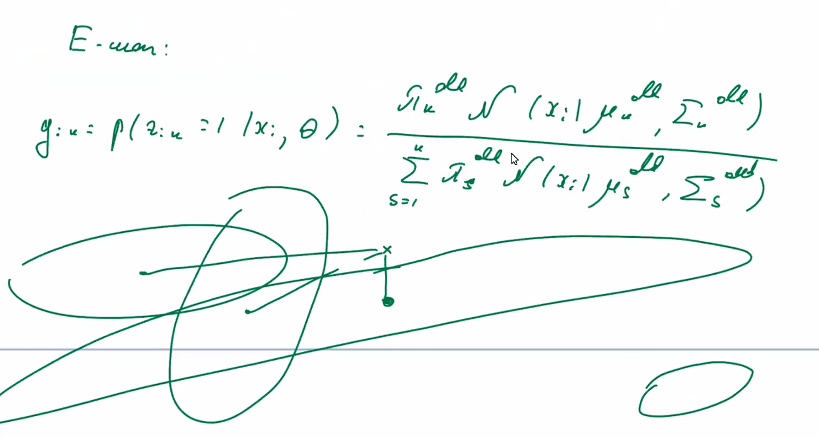 E-шаг:
g_{ik} = p(z_{ik} = 1 | x_i, θ) = \frac{π_k^{old} N(x_i | μ_k^{old}, Σ_k^{old})}{\sum_{s=1}^{K} π_s^{old} N(x_i | μ_s^{old}, Σ_s^{old})}